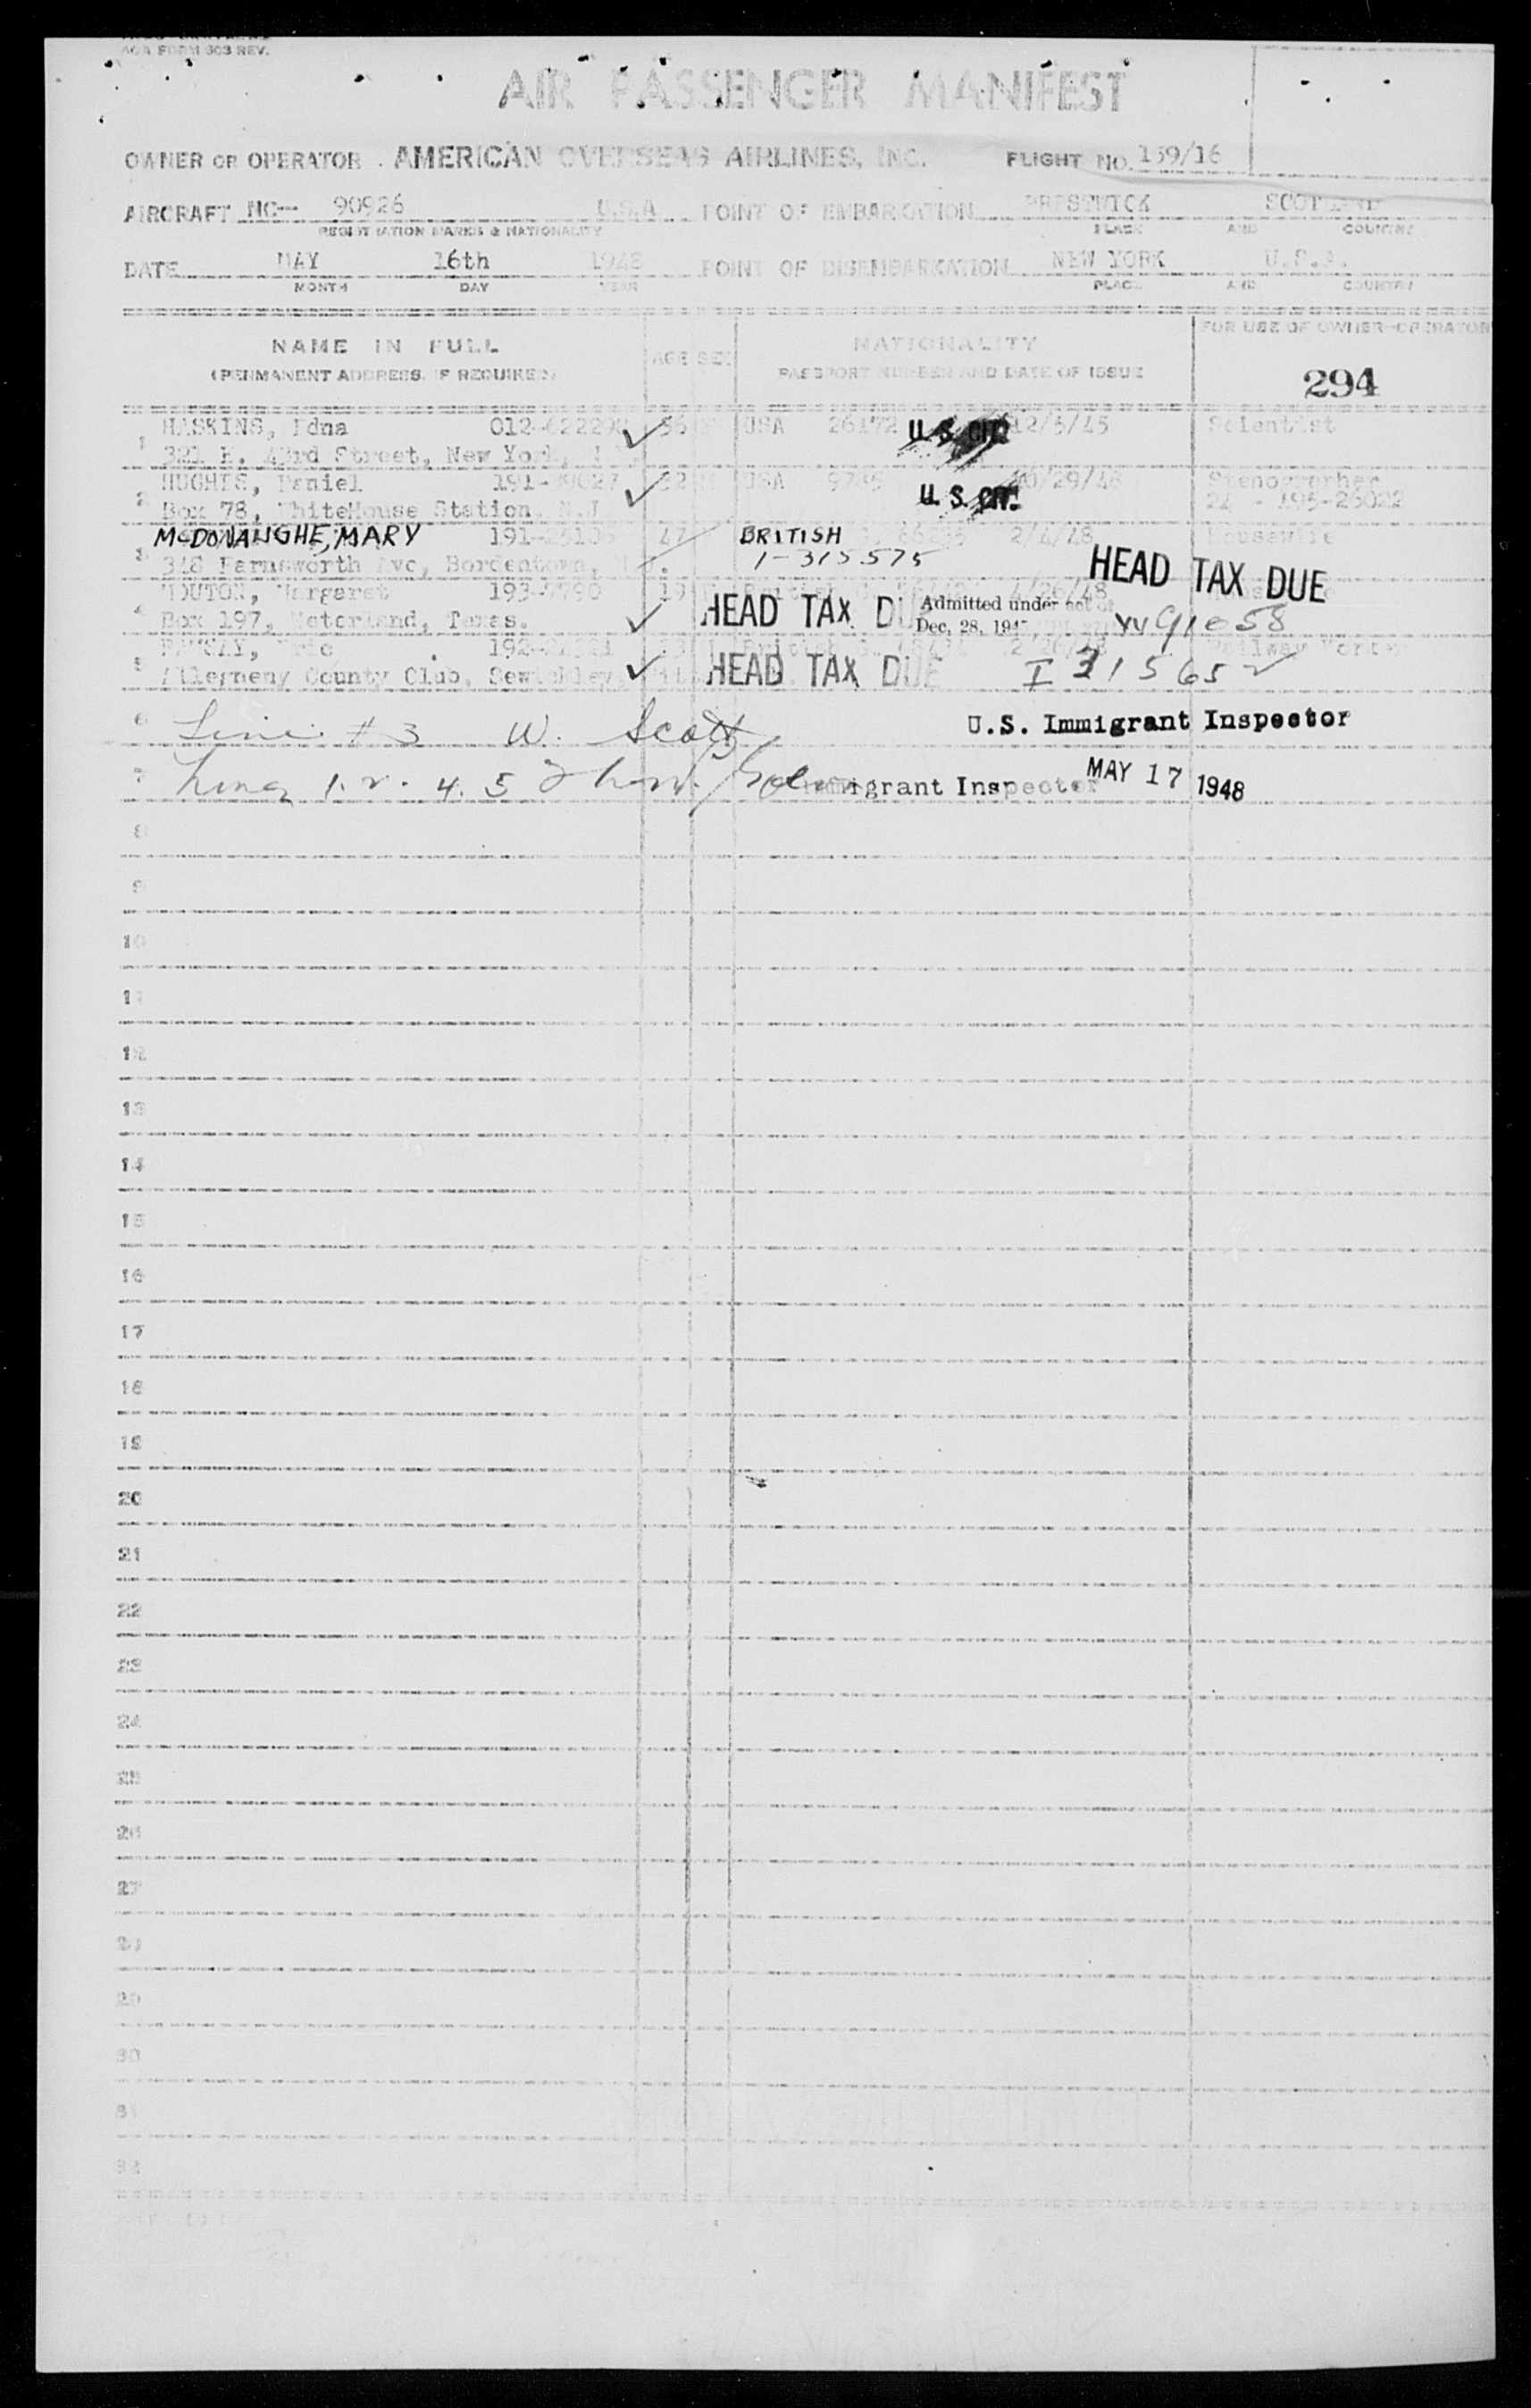 AOA FORM 303 REV.
AIR PASSENGER MANIFEST
OWNER OR OPERATOR AMERICAN OVERSEAS AIRLINES, INC. FLIGHT NO. 159/16
AIRCRAFT NC— 90926 U.S.A. POINT OF EMBARKATION PRESTWICK SCOTLAND
REGISTRATION MARKS & NATIONALITY PLACE AND COUNTRY
DATE MAY 16th 1948 POINT OF DISEMBARKATION NEW YORK U.S.A.
MONTH DAY YEAR PLACE AND COUNTRY
NAME IN FULL AGE SEX NATIONALITY FOR USE OF OWNER-OPERATOR
(PERMANENT ADDRESS, IF REQUIRED) PASSPORT NUMBER AND DATE OF ISSUE 294
HASKINS, Edna 56 USA U.S. CIT. 12/5/45 Scientist
1 321 E. 43rd Street, New York,
HUGHES, Daniel USA 10/29/46 Stenographer
2 Box 78, WhiteHouse Station, N.J U.S. CIT.
McDONANGHE, MARY 47 BRITISH 2/4/48 Housewife
3 318 Farnsworth Ave, Bordentown, 1-315575 HEAD TAX DUE
MOUTON, Margaret 19 4/26/48
4 Box 197, Texas. HEAD TAX DUE Admitted under act of
Dec. 28, 194
5 Allegheny County Club, Sewickley, HEAD TAX DUE I 315652
Railway Porter
6 Line #3 W. Scott U.S. Immigrant Inspector
7 Lines 1. 2. 4. 5 Immigrant Inspector MAY 17 1948
8
9
10
11
12
13
14
15
16
17
18
19
20
21
22
23
24
25
26
27
28
29
30
31
32